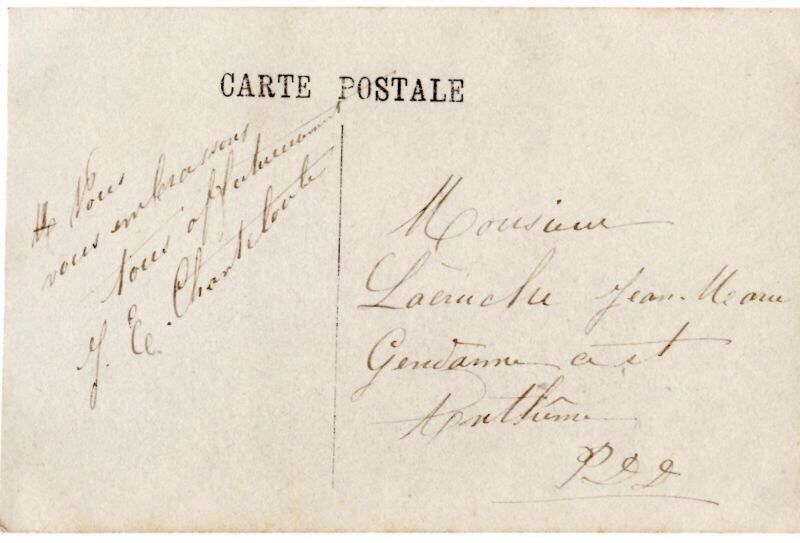 CARTE POSTALE
Nous
vous embrassons
tous affectueusement
J. E. Chanteloube
Monsieur
Laëruche Jean-Marie
Gendarme a st
Anthême
PDD